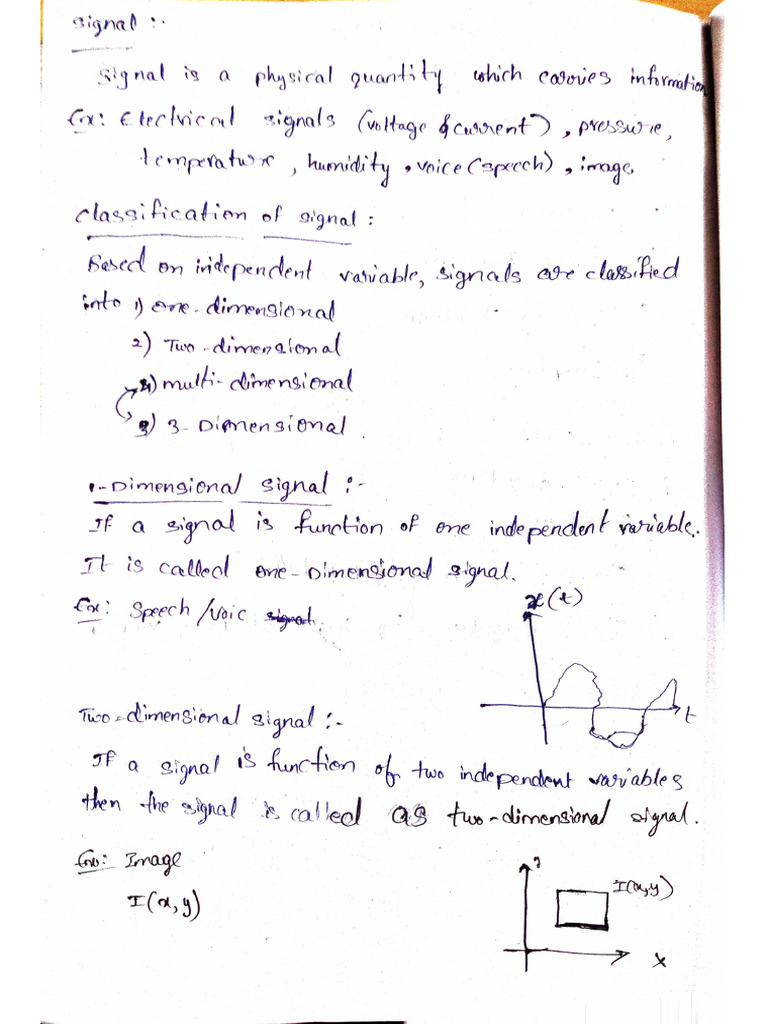 Signal :-
Signal is a physical quantity which carries information
Ex: Electrical signals (voltage & current), pressure,
temperature, humidity, voice (speech), image
Classification of signal :
Based on independent variable, signals are classified
into 1) one-dimensional
2) Two-dimensional
4) multi-dimensional
3) 3-Dimensional
1-Dimensional signal :-
If a signal is function of one independent variable.
It is called one-Dimensional signal.
Ex: Speech/Voic signal.
x(t)
t
Two-dimensional signal :-
If a signal is function of two independent variables
then the signal is called as two-dimensional signal.
Ex: Image
I(x,y)
y
I(x,y)
x